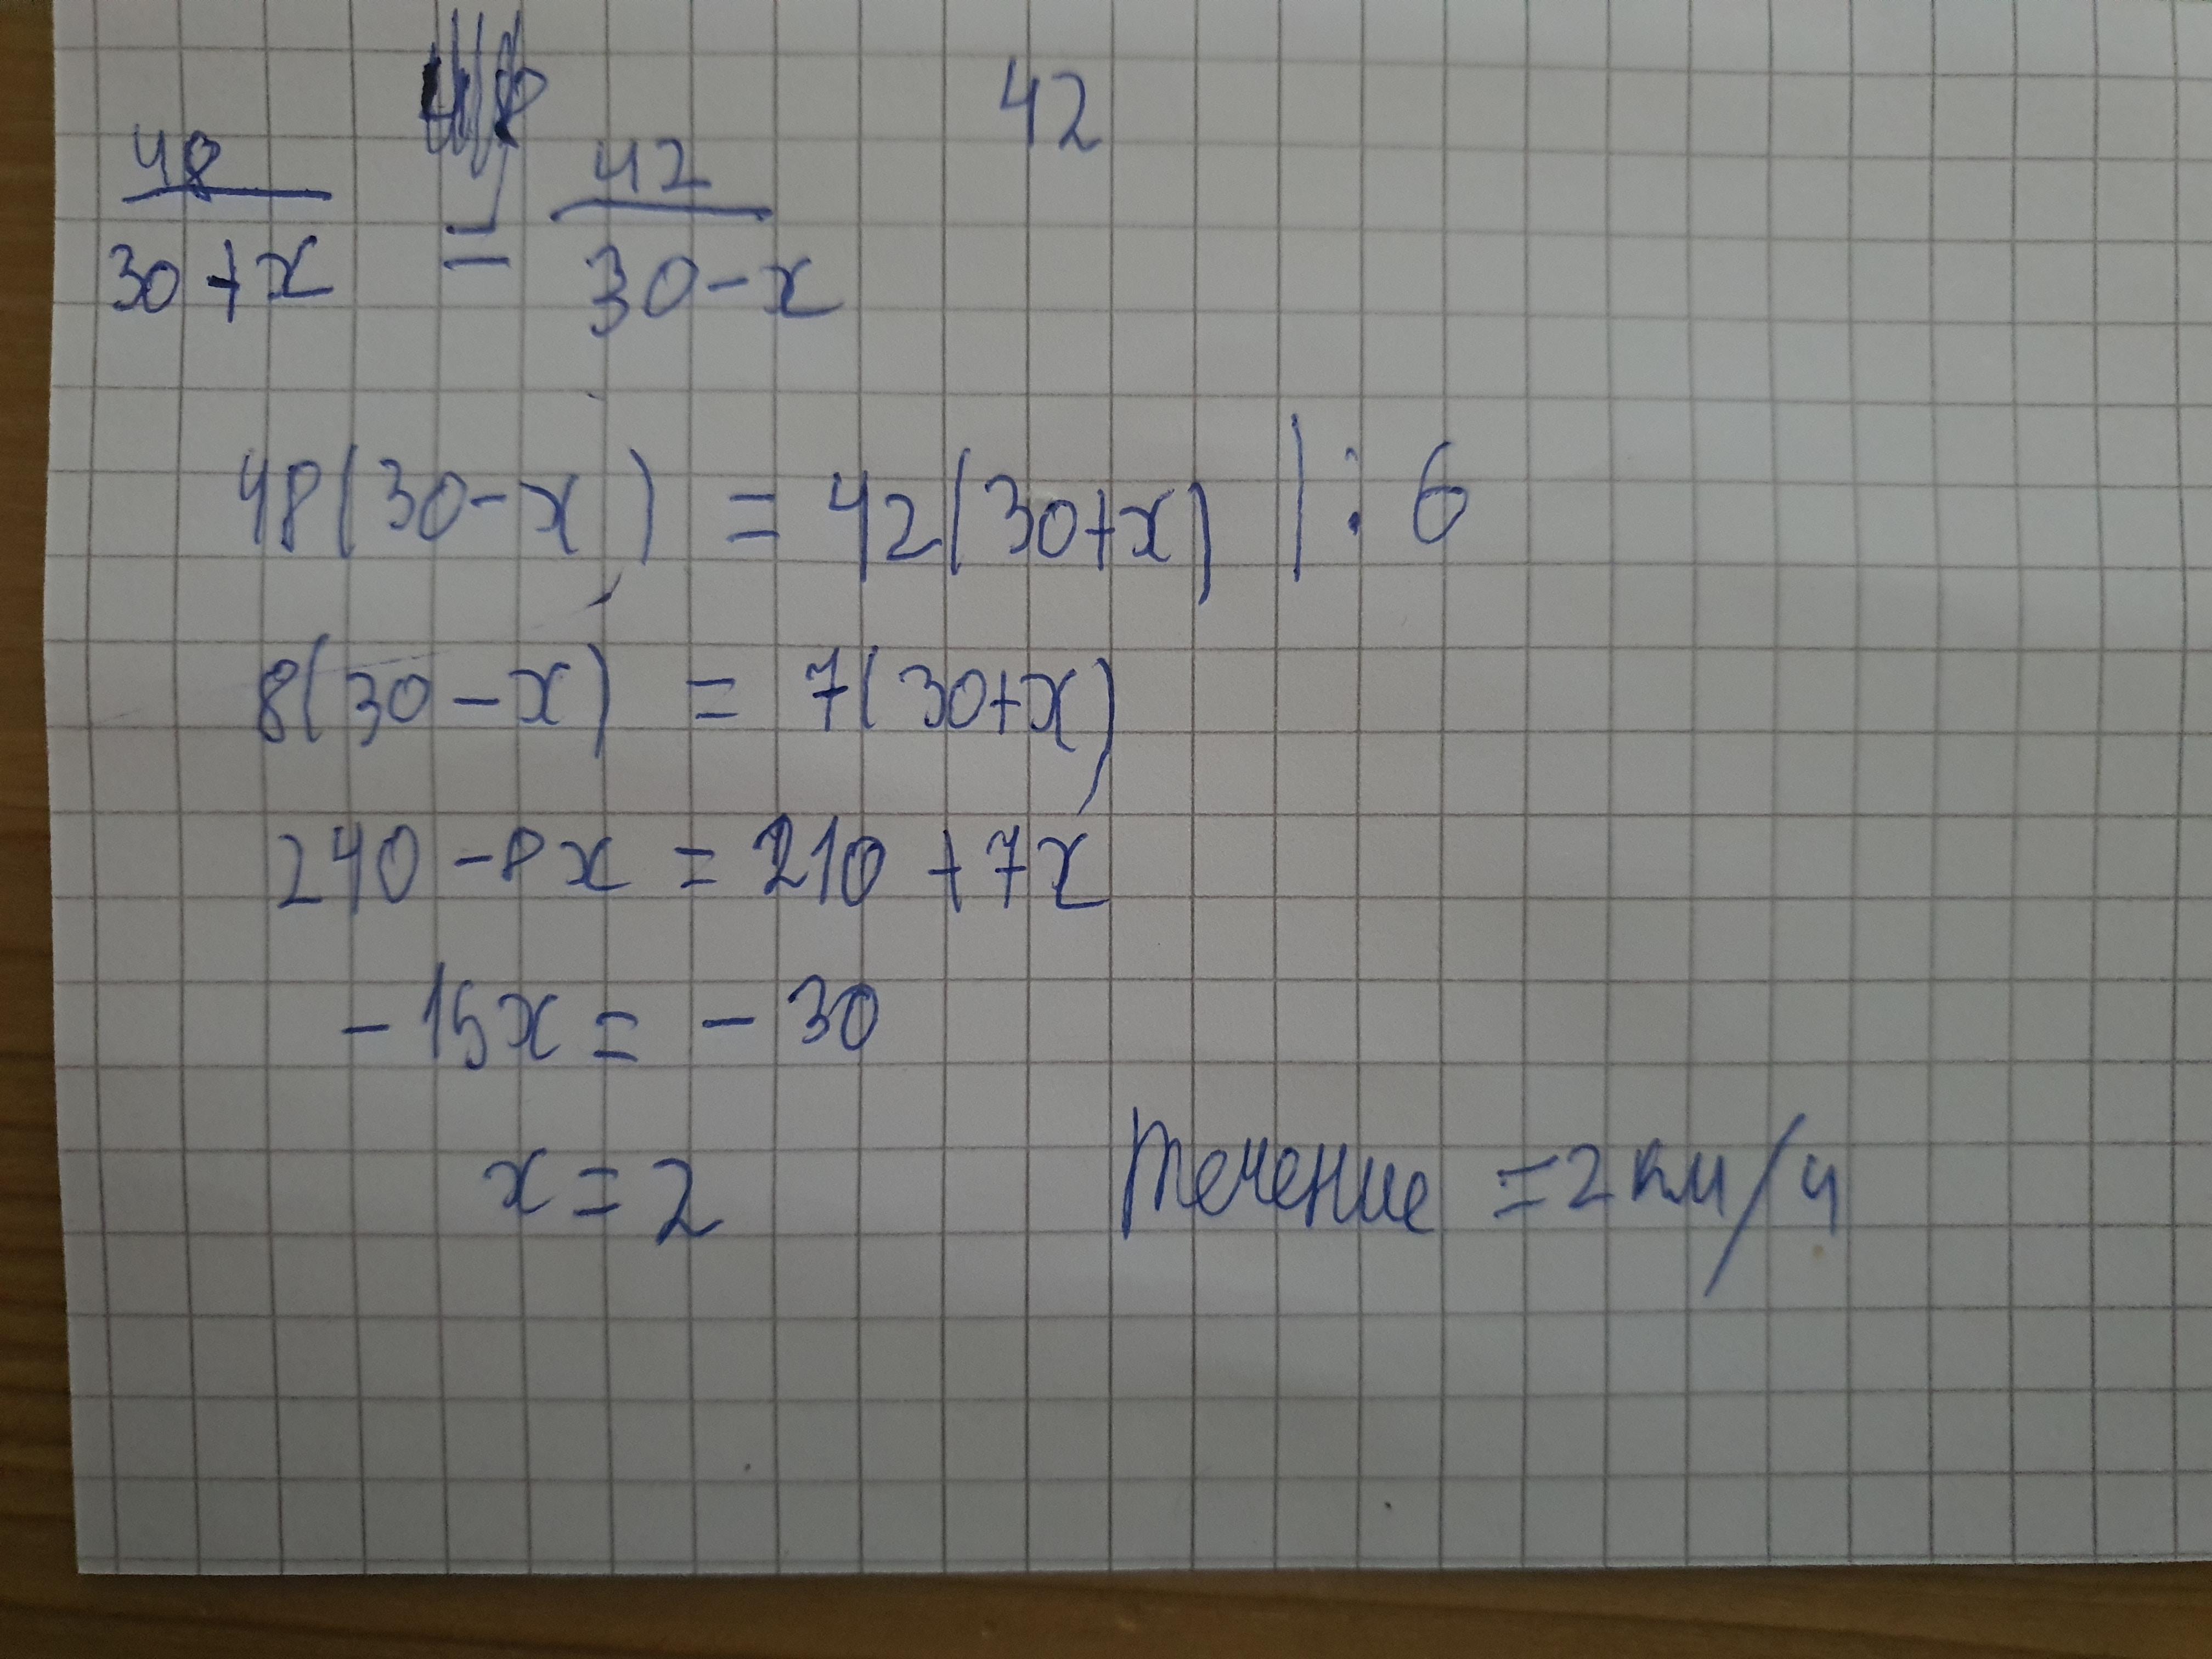 42
48 / 30+x = 42 / 30-x
48(30-x) = 42(30+x) | : 6
8(30-x) = 7(30+x)
240 -8x = 210 +7x
-15x = -30
x = 2
течение =2 км/ч